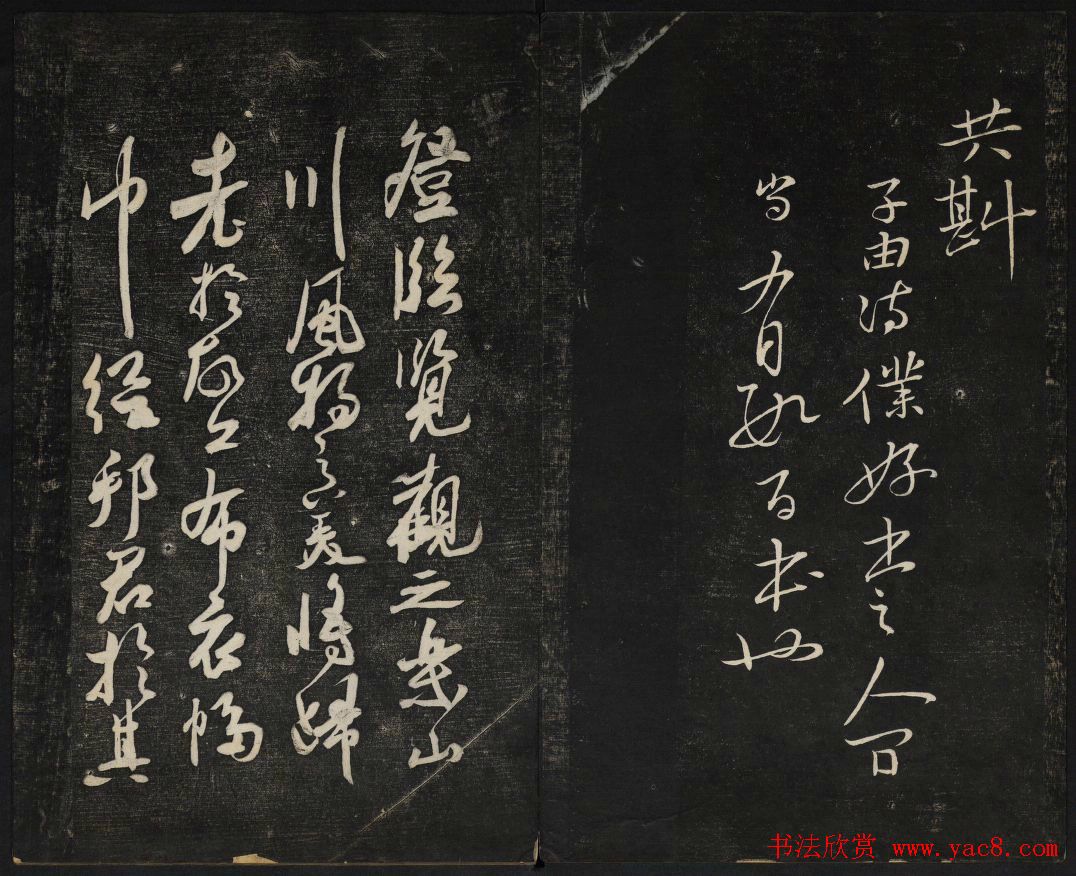 共斟
子由詩僕好書之人間
當有數百本也
登臨覽觀之樂山
川風物之美將歸
老於故丘布衣幅
巾從邦君於其
书法欣赏 www.yac8.com